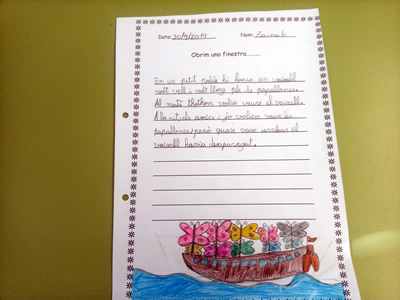 Data: 30/9/2019 Nom: Zainab
Obrim una finestra
En un petit poble hi havia un vaixell
molt vell i molt lleig ple de papallones.
Al matí thothom volia veure el vaixell.
A la nit els amics i jo voliem veure les
papallones, però quasi vam arribar el
vaixell havia desaparegut.